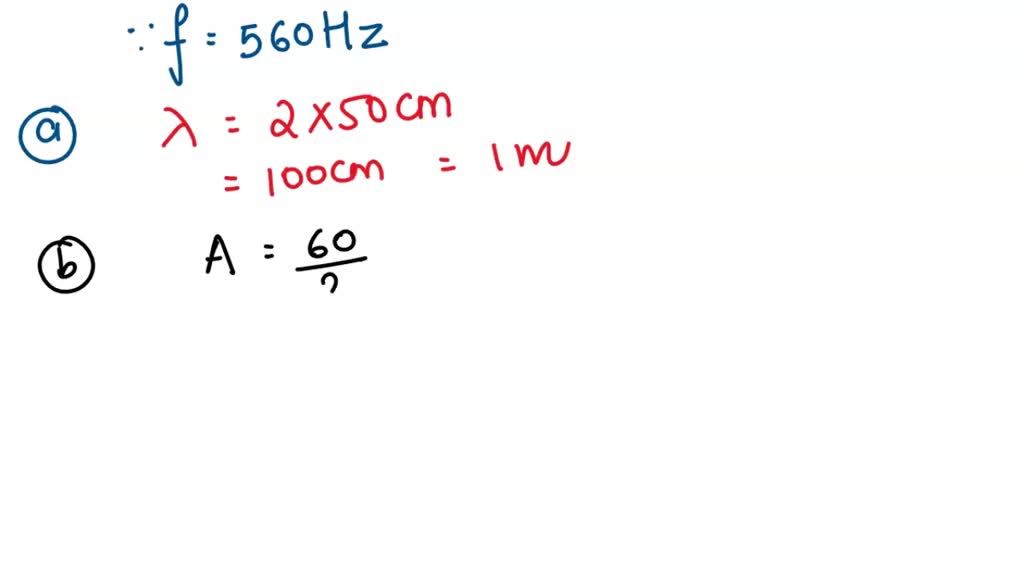 ∵ f = 560 Hz
(a) λ = 2 × 50 cm
= 100 cm = 1 m
(b) A = 60/2